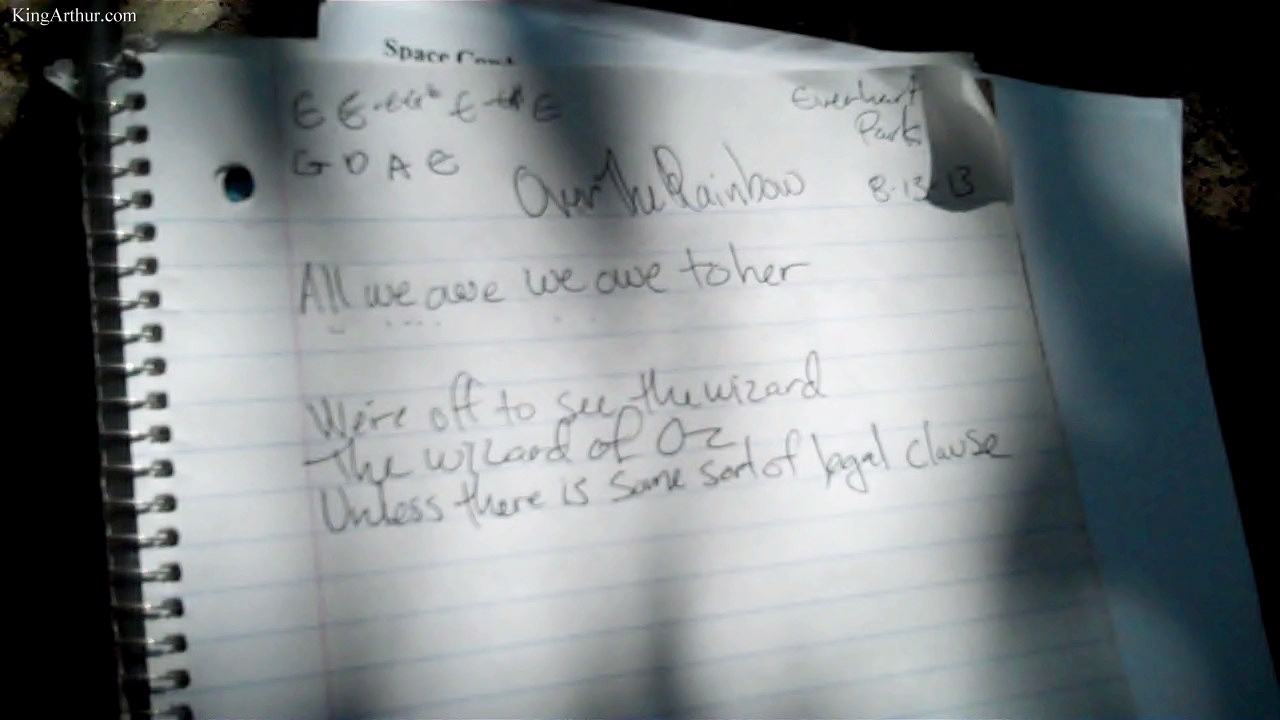 KingArthur.com
Space
E E E E
G D A E
Everhart
Park
8-13-13
Over The Rainbow
All we awe we owe to her
We're off to see the wizard
The wizard of Oz
Unless there is some sort of legal clause